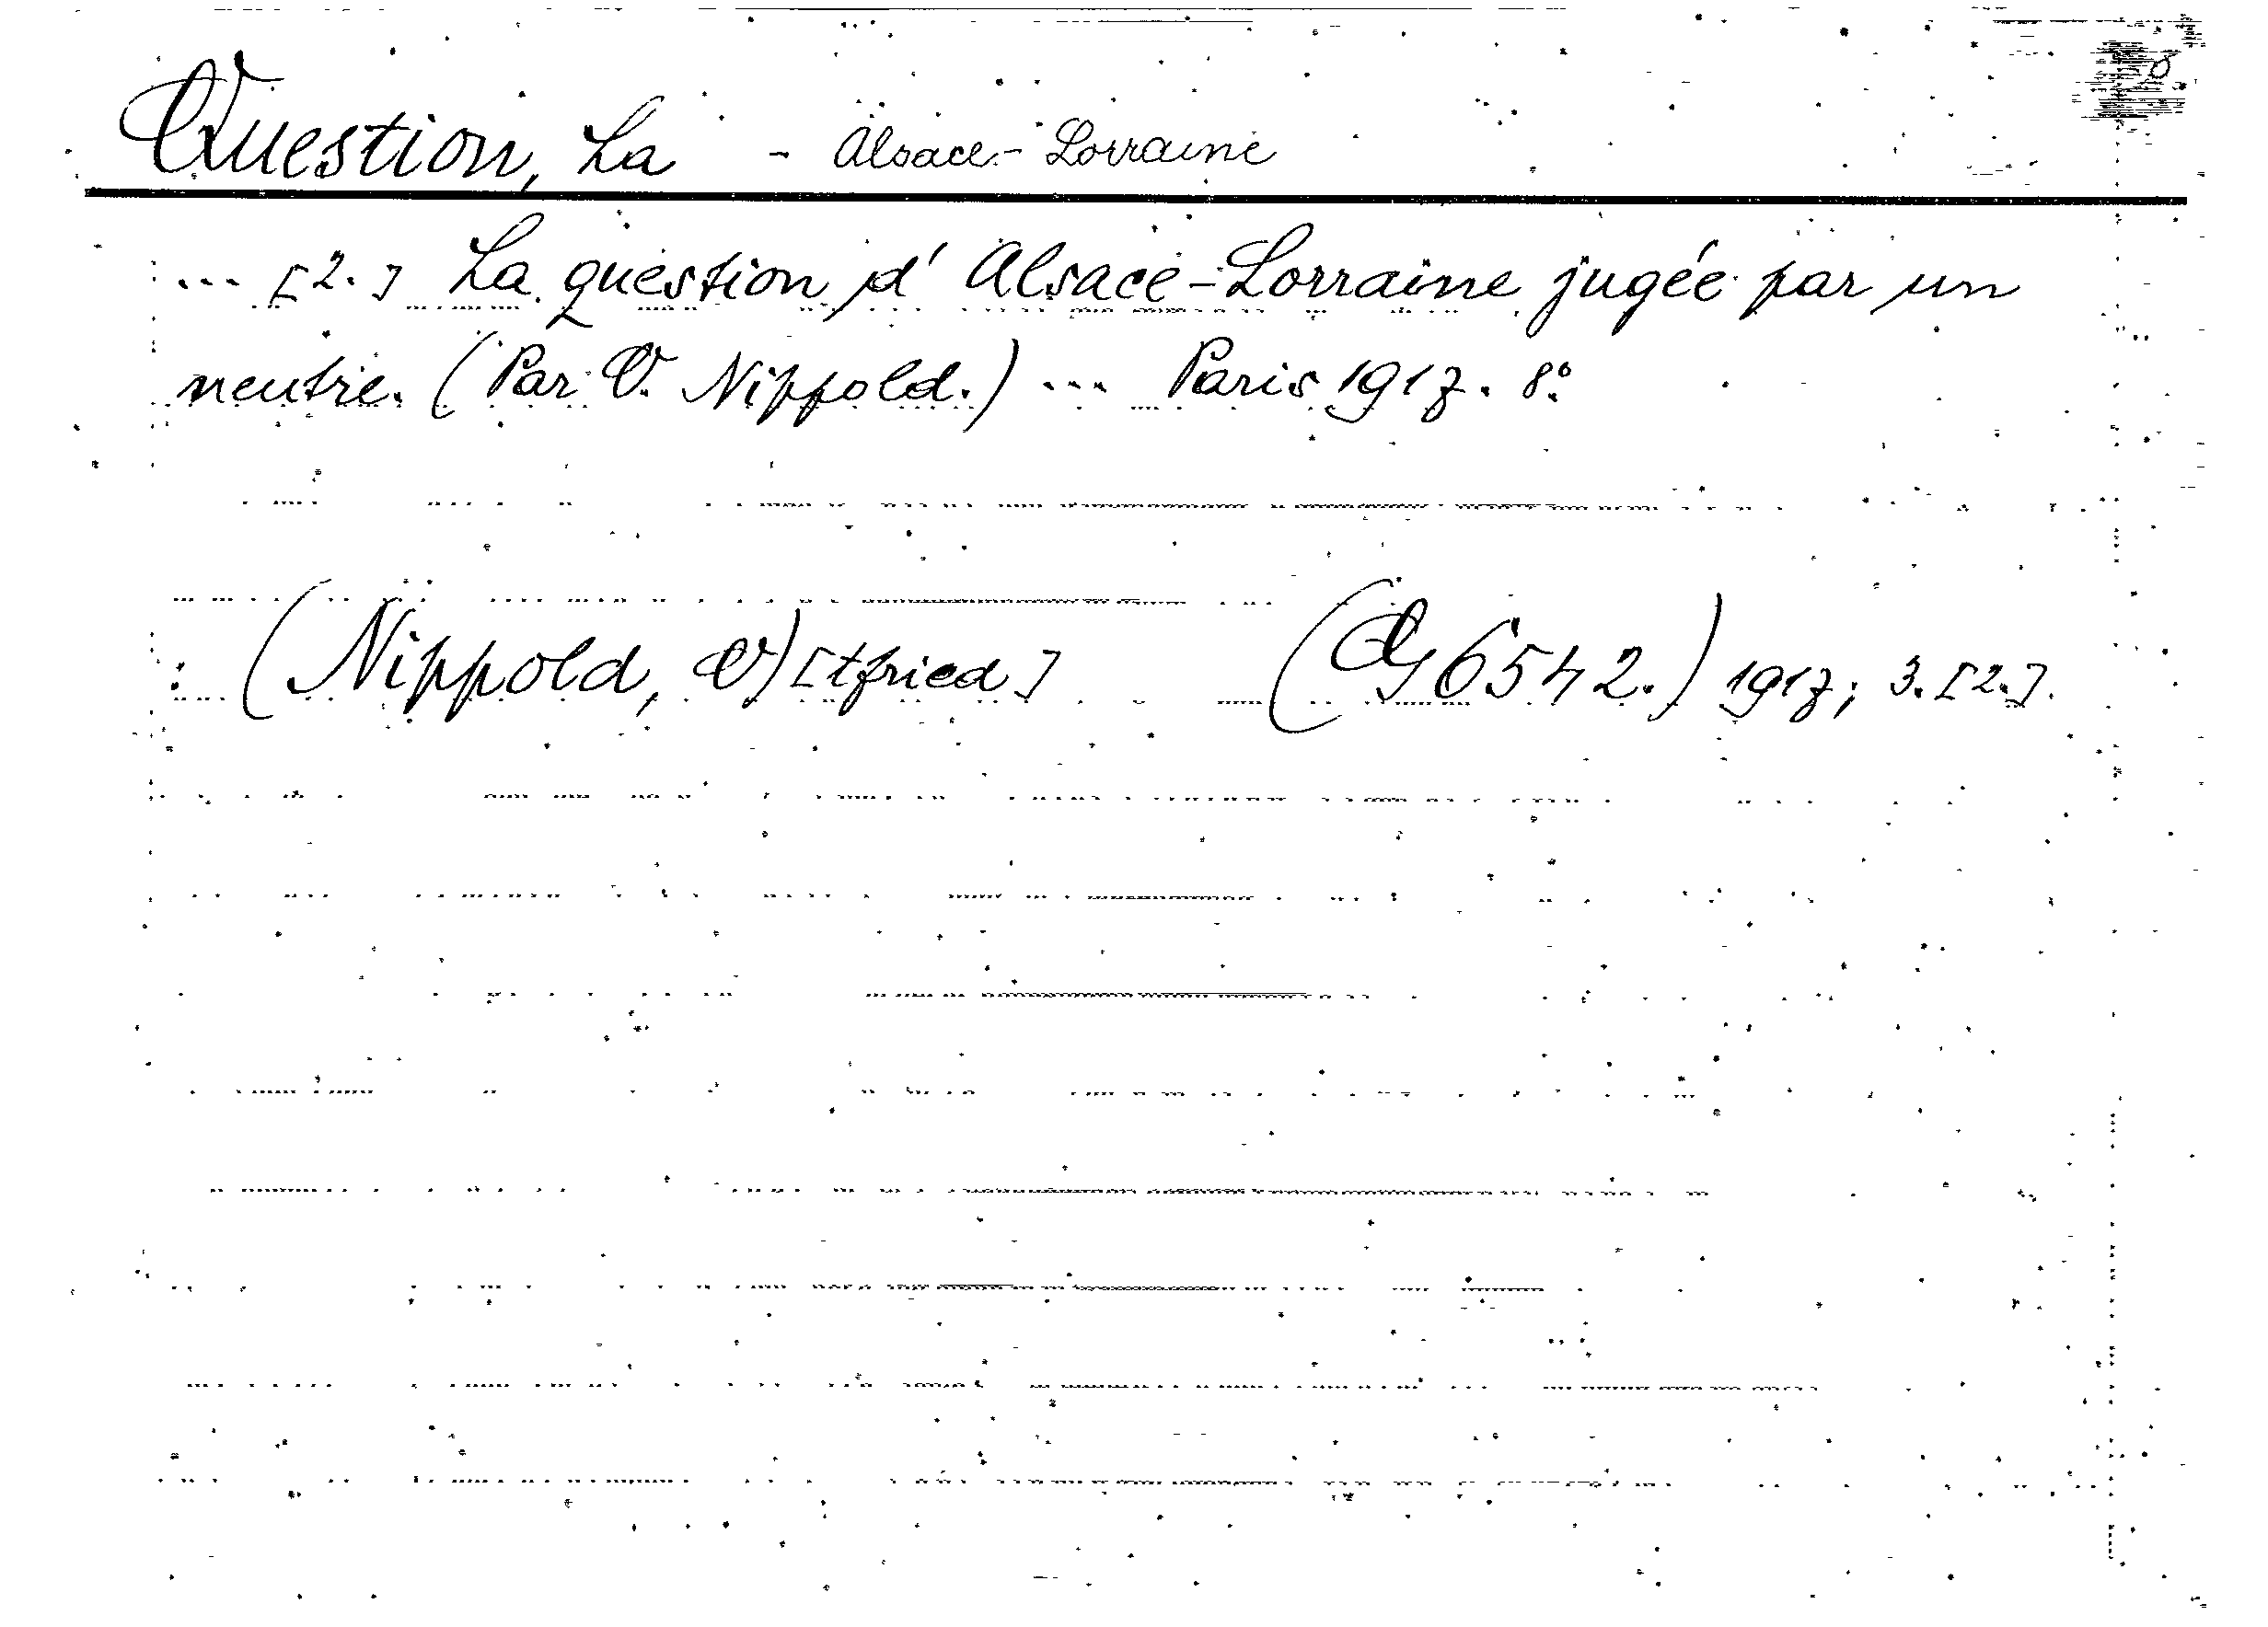 Question, La - Alsace-Lorraine
... [2.] La question d'Alsace-Lorraine jugée par un
neutre. (Par O. Nippold.) ... Paris 1917. 8°.
(Nippold, O)[tfried] (G 6542.) 1917; 3. [2.].